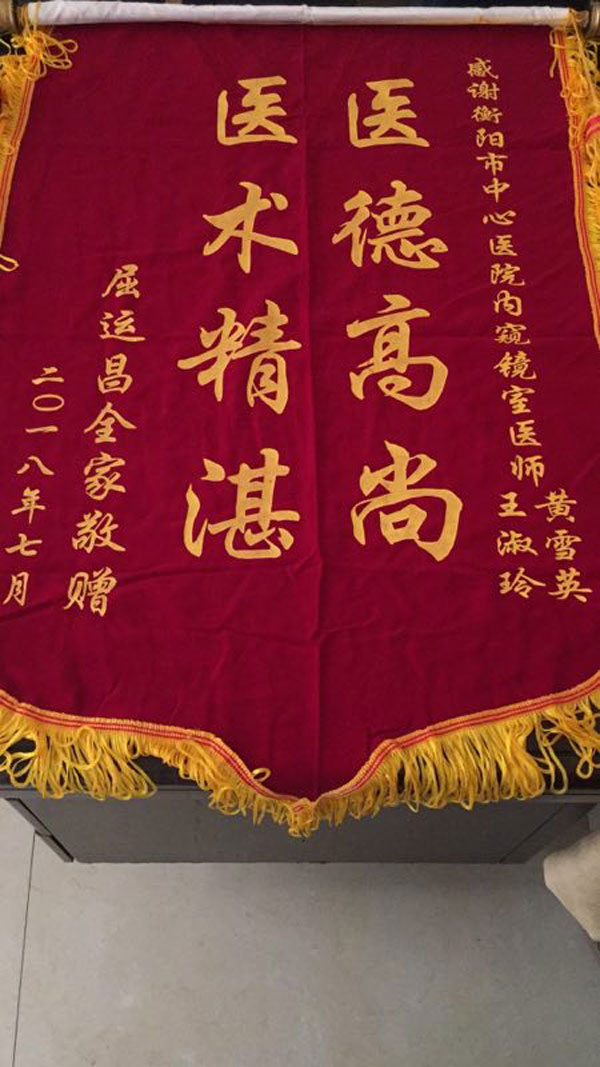 感谢衡阳市中心医院内窥镜室医师
黄雪英
王淑玲
医德高尚
医术精湛
屈运昌全家敬赠
二〇一八年七月